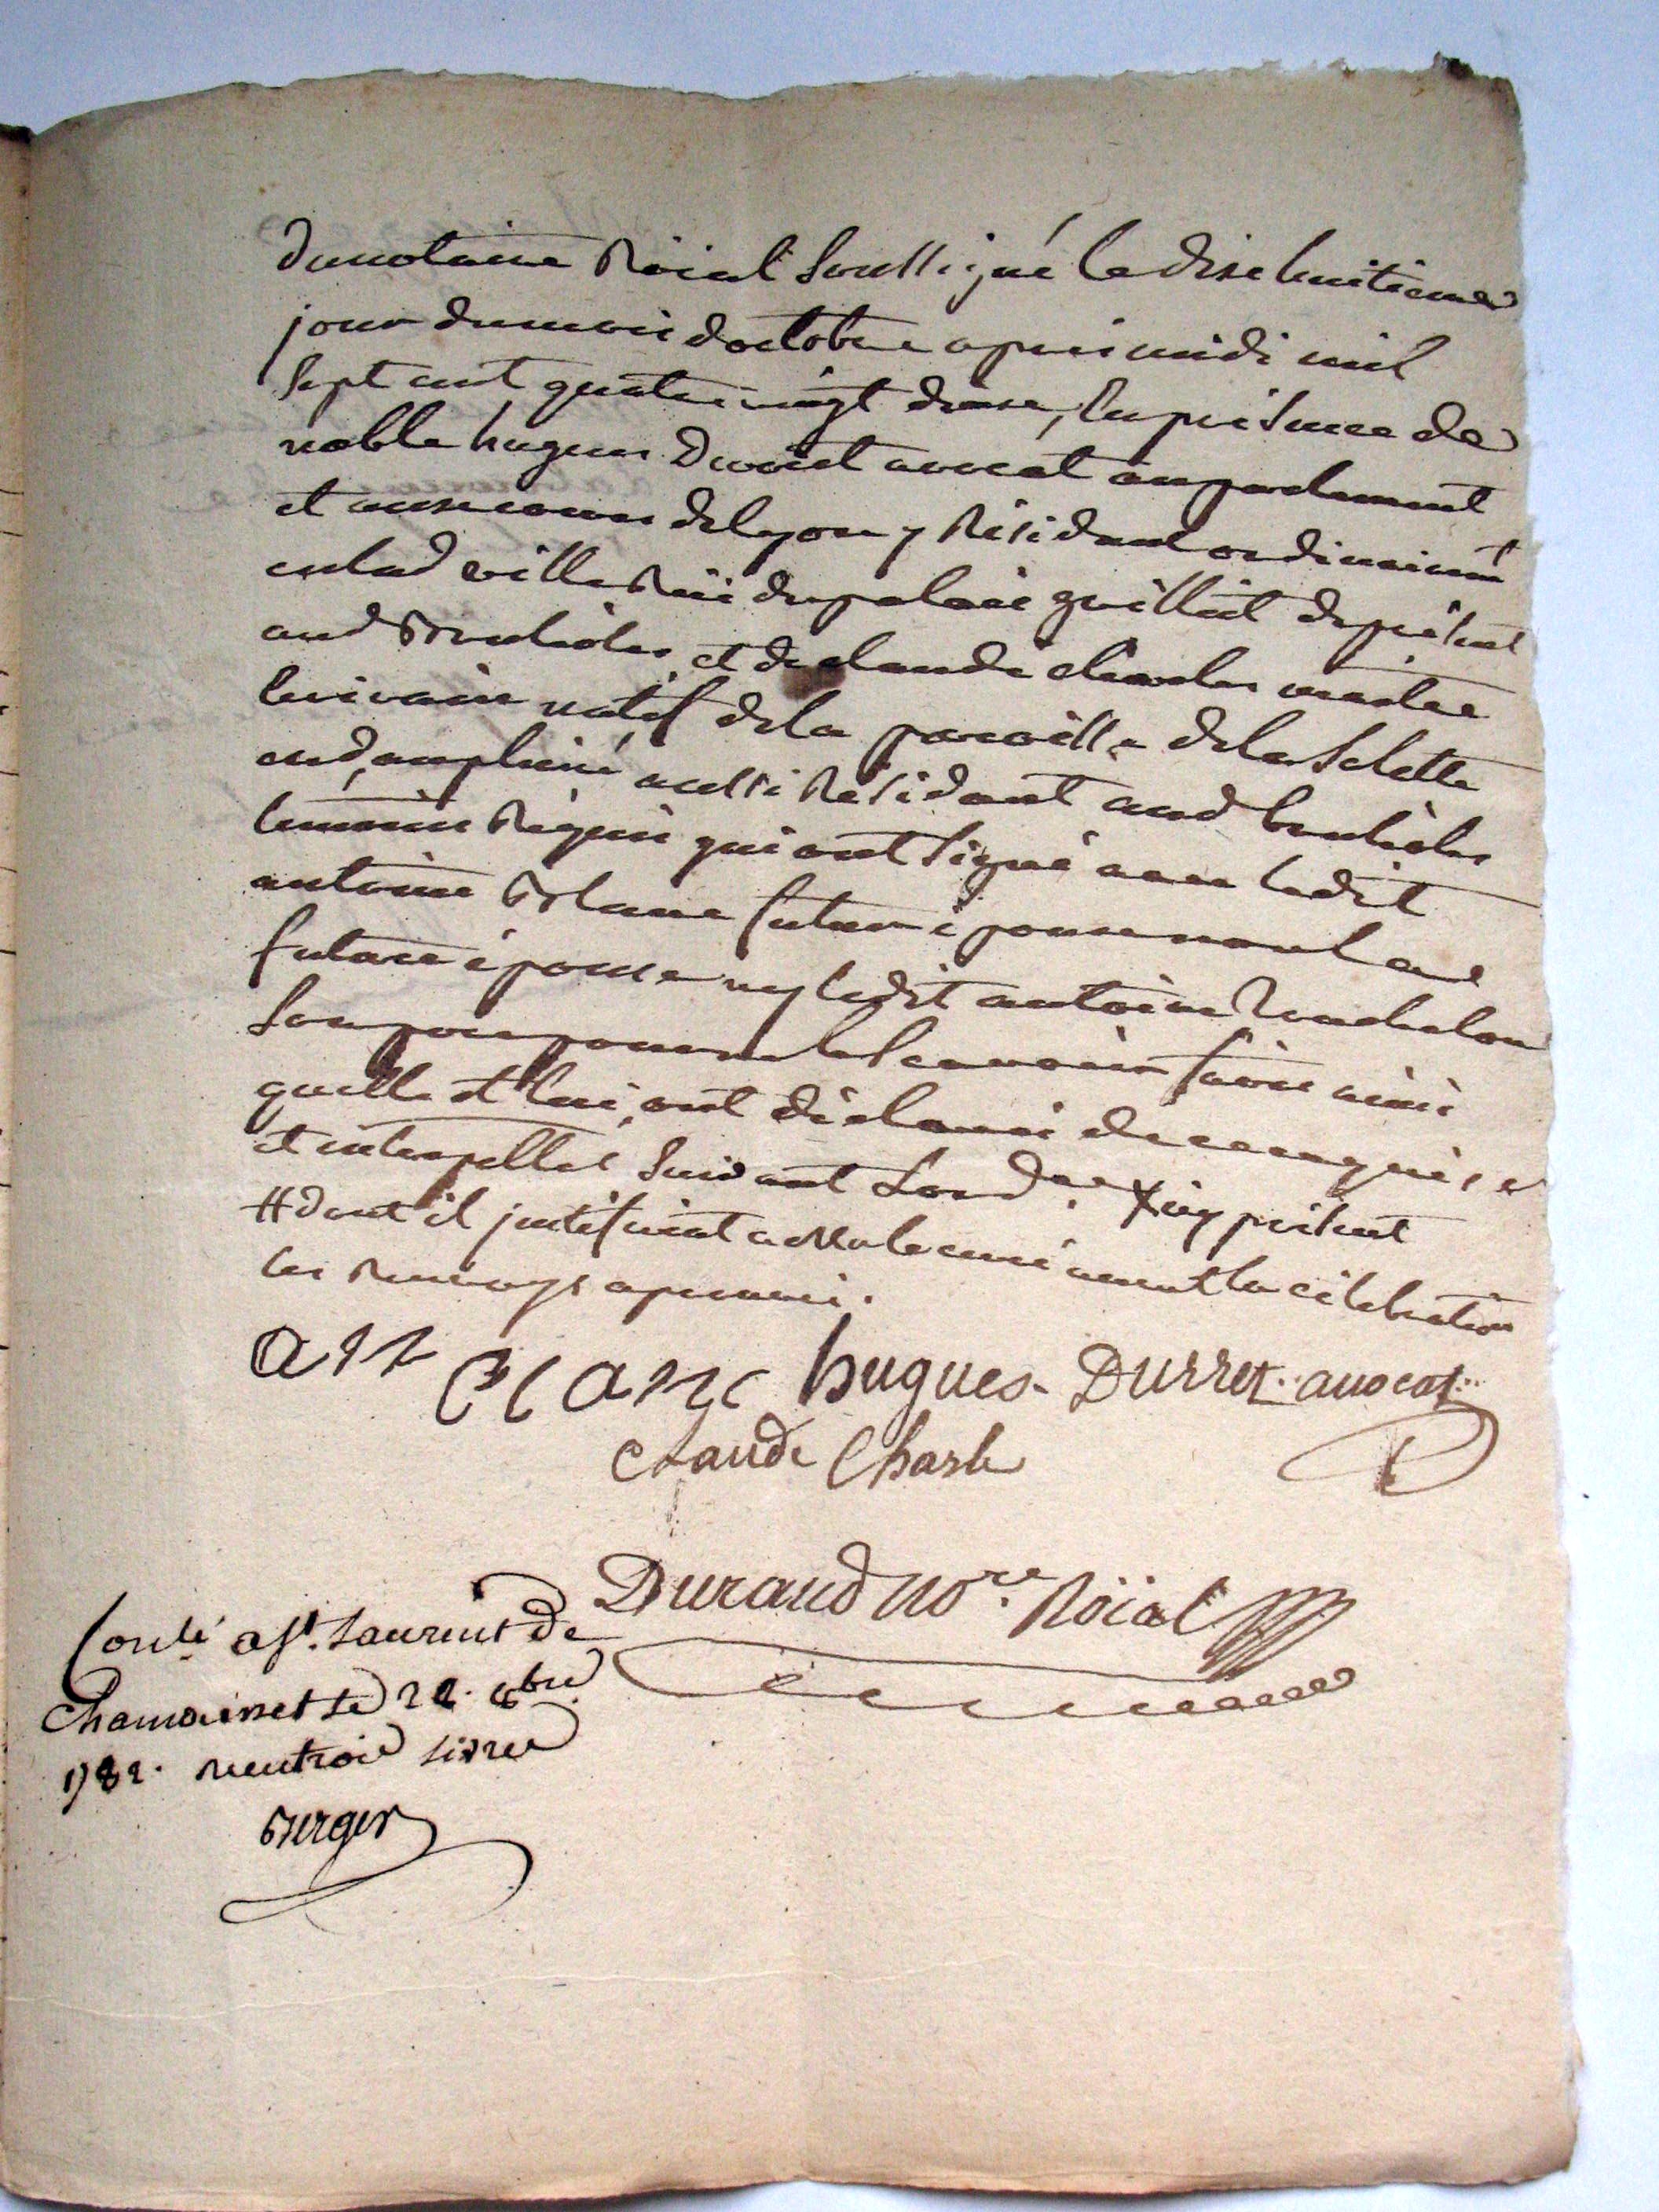 du notaire Roïal soussigné le dix huitieme
jour du mois doctobre apres midi mil
sept cent quatre vingt deux, en presence de
noble hugues Durret avocat au parlement
et aux cours de lyon y Résidant ordinairemt
en lad ville Rüe du palais grillet de présent
aud Brulioles et de claude charles maitre
ecrivain natif de la paroisse de la
aussi Résidant aud brulioles
temoins Requis qui ont signé avec ledit
antoine Blanc futur epoux non lad
future épouse ny ledit antoine
son pour ne le scavoir faire ainsi
quelle et lui ont déclaré de ce enquis
et interpellés suivant lord.ce ny présent
# dont il justifiront a Mr le curé avant la célébration
les Renvoys aprouvés.
ant Blanc hugues Durret avocat
Claude Charle
Durand no.re Roïal
Conlé a St. Laurent de
Chamousset le 22. 8bre
1782. Recu trois livres
Berger